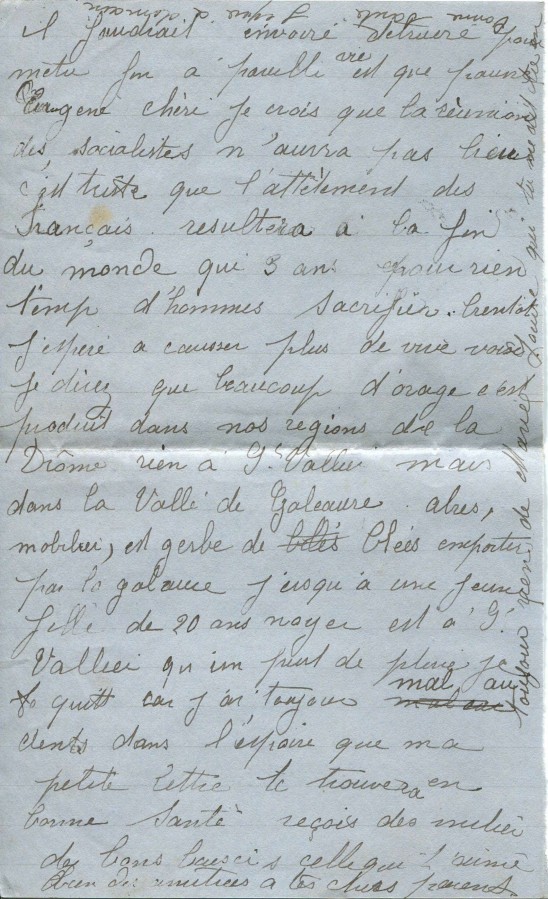 il faudrait envoiré detruire pour
mètre fin a pareille vie est que pauvre
Eeugene chéri je crois que la rèunion
des socialistes n'aurra pas lieu
c'est triste que l'attètement des
Français resultera a la fin
du monde qui 3 ans pour rien
temp d'hommes sacrifier. bientot
j'espère a causser plus de vive voix
je direz que beaucoup d'orage c'est
produit dans nos regions de la
Drôme rien à St Vallier mais
dans la Vallé de Galeaure abres,
mobilier, est gerbe de blés blées emporter
par la galaure j'usqu'a une jeune
fille de 20 ans noyer est a St
Vallier qu'un peut de pluie je
te quitt car j'ai toujour mal au
dents dans l'éspoire que ma
petite lettre te trouvera en
bonne Santé reçois des milier
des bons baisers celle qui t'aime
bien des amitiees a tes chers parents.
toujour rien de Marcel
bonne Santé